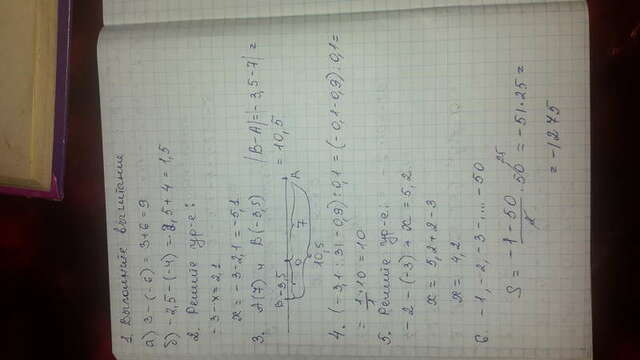 1. Выполните вычитание
а) 3 - (-6) = 3+6 = 9
б) -2,5 - (-4) = -2,5 + 4 = 1,5
2. Решите ур-е:
-3 - x = 2,1
x = -3 - 2,1 = -5,1
3. A(7) и B(-3,5) |B-A| = |-3,5-7| =
= 10,5
B -3,5 0 7 A
10,5
4. (-3,1 : 31 - 0,9) : 0,1 = (-0,1-0,9) : 0,1 =
= 1·10 = 10
5. Решите ур-е:
-2 - (-3) + x = 5,2
x = 5,2 + 2 - 3
x = 4,2
6. -1, -2, -3 - .... - 50
S = -1-50/2 · 50 25 = -51·25 =
= -1275